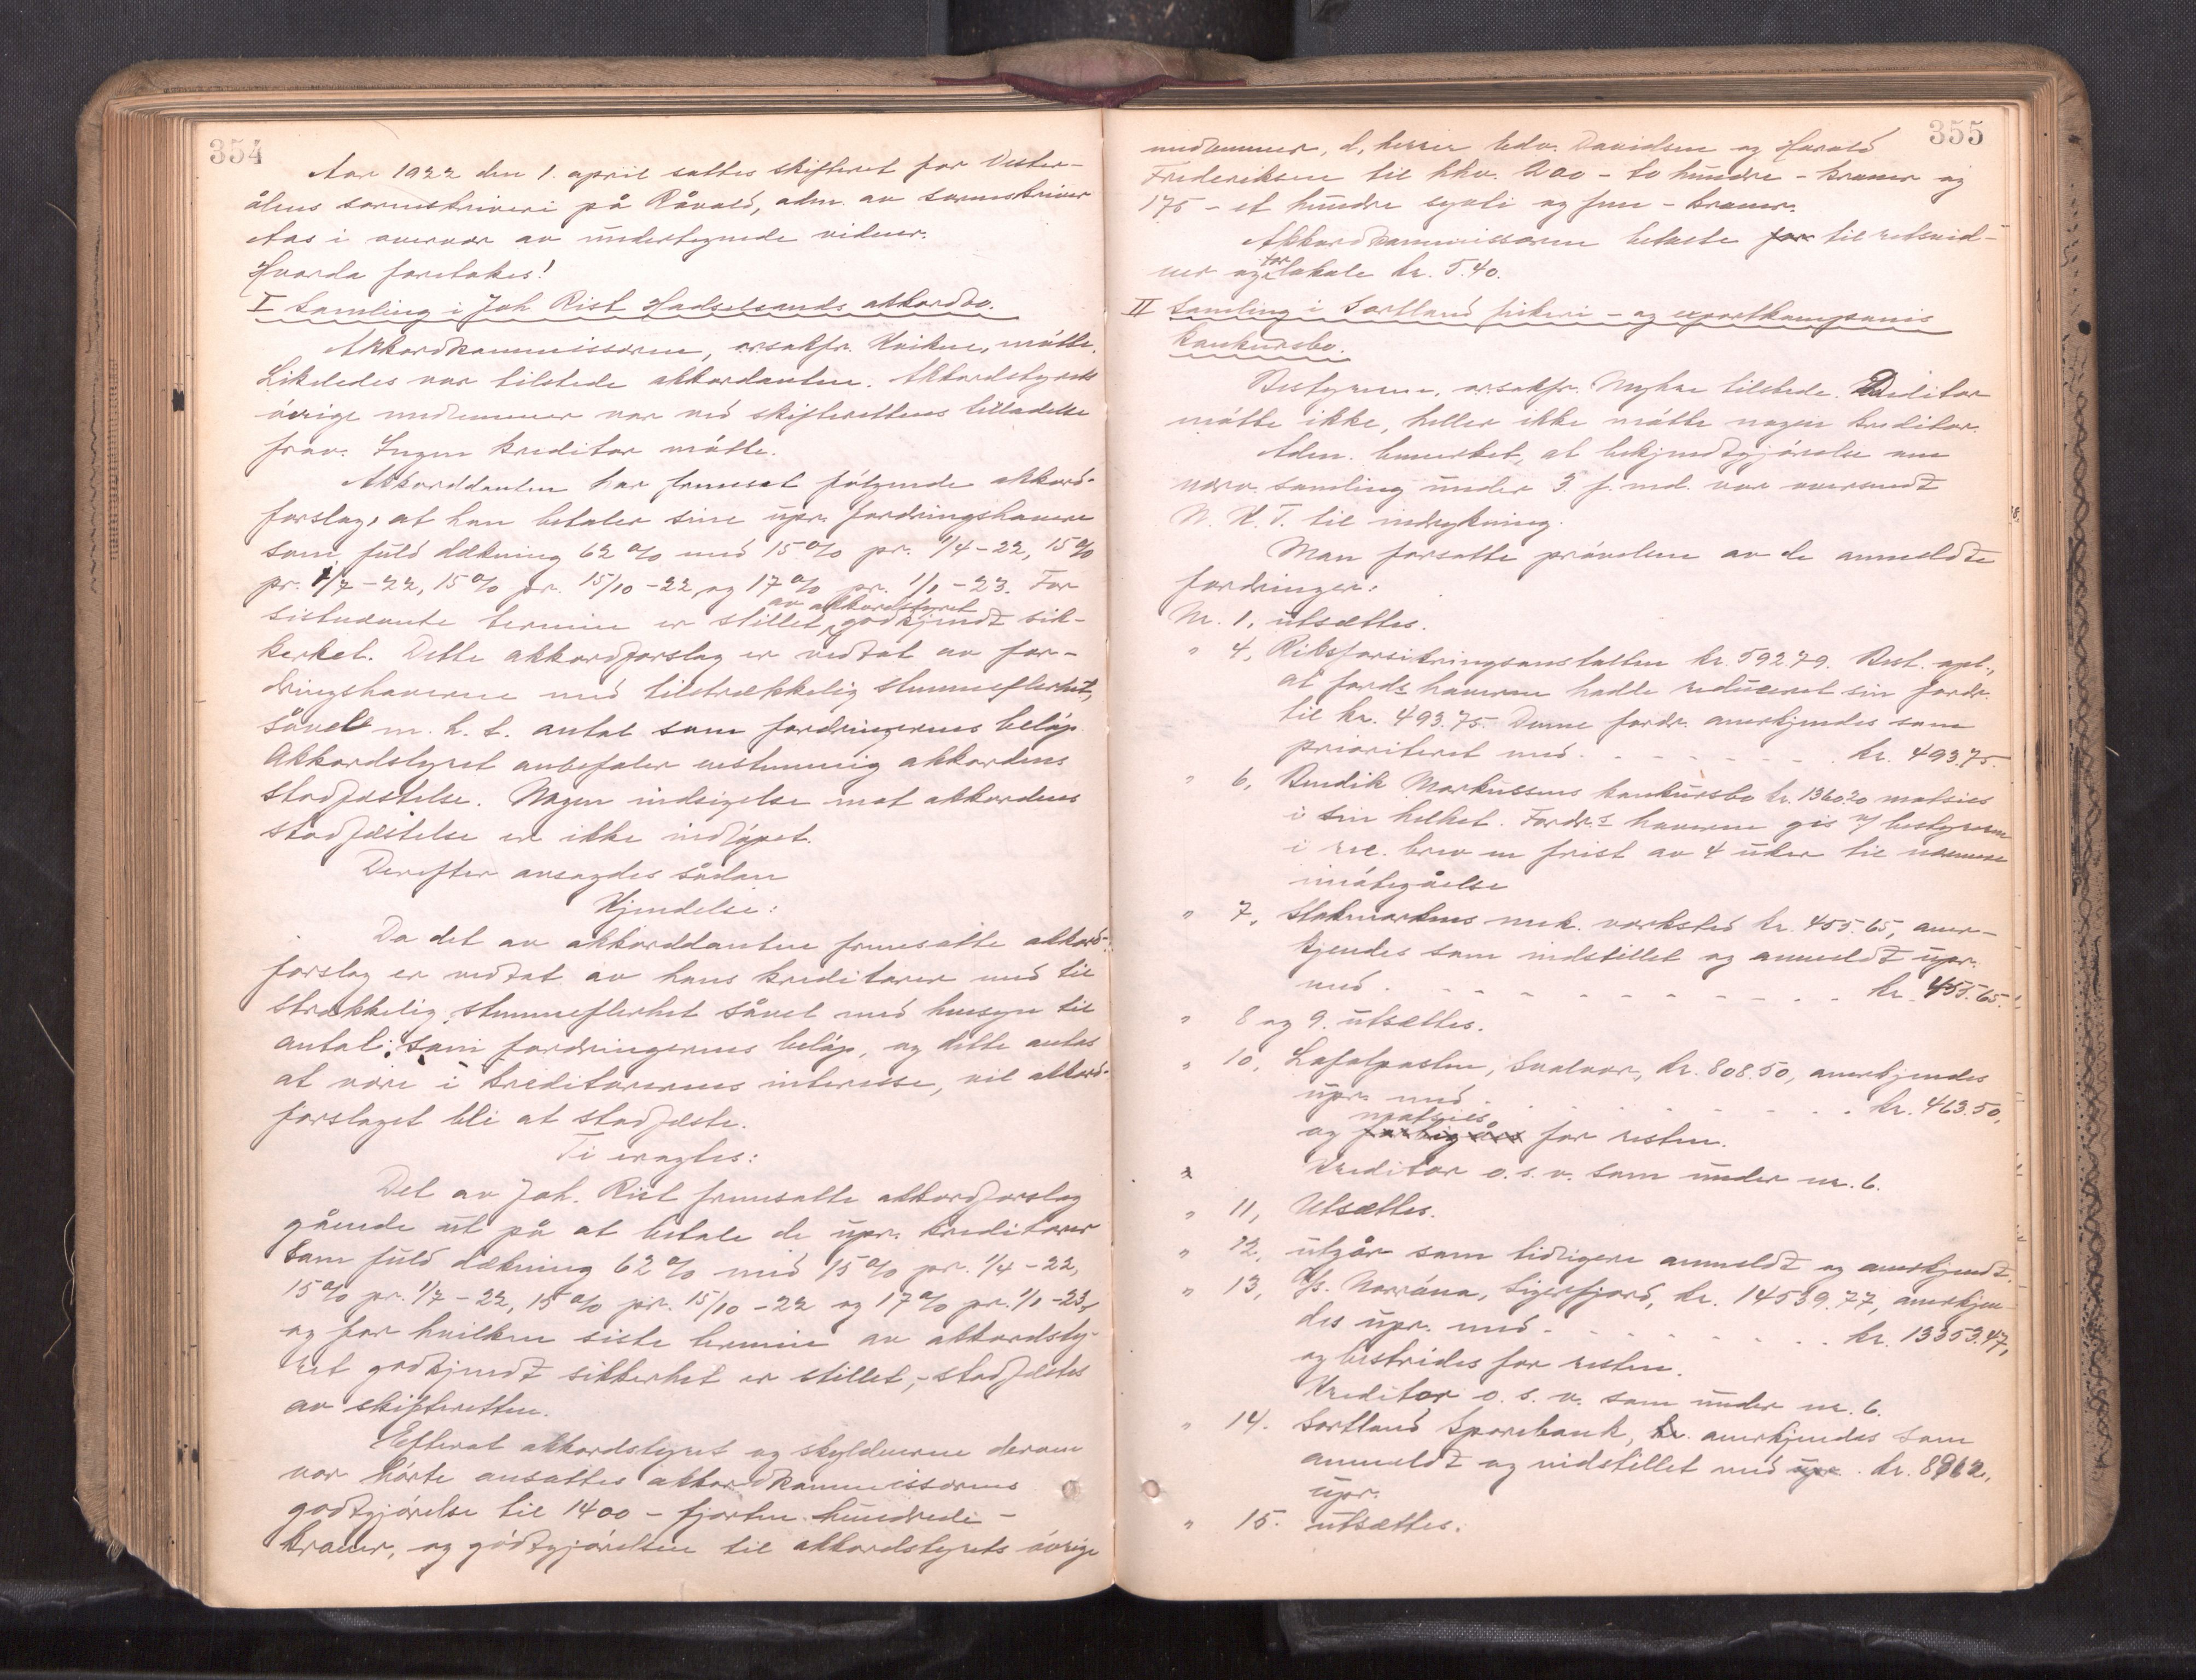 354
Aar 1922 den 1. april sattes skifteret for Vester-
ålens sorenskriveri på Råvald, adm. av sorenskriver
Aas i overvær av undertegnede vidner.
Hvorda foretokes!
I Samling i Joh Rist Hadselsands akkordbo.
Akkordkommissæren, o.r.sakfr. Kvikne, møtte.
Likeledes var tilstede akkordanten. Akkordstyrets
øvrige medlemmer var ved skifterettens tilladelse
frav. Ingen kreditor møtte.
Akkorddanten har fremsat følgende akkord-
forslag, at han betaler sine upr. fordringshavere
som fuld dækning 62 % med 15 % pr. 1/4-22, 15 %
pr. 1/7-22, 15 % pr. 15/10-22 og 17 % pr. 1/1-23. For
av akkordstyret
sistnævnte termin er stillet godkjendt sik-
kerhet. Dette akkordforslag er vedtat av for-
dringshaverne med tilstrækkelig stemmeflerhet,
såvel m. h. t. antal som fordringernes beløp.
Akkordstyret anbefaler enstemmig akkordens
stadfæstelse. Nogen indsigelse mot akkordens
stadfæstelse er ikke indløpet.
Derefter avsagdes sådan
Kjendelse:
Da det av akkorddanten fremsatte akkord-
forslag er vedtat av hans kreditorer med til
strækkelig stemmeflerhet såvel med hensyn til
antal som fordringernes beløp, og dette antas
at være i kreditorernes interesse, vil akkord-
forslaget bli at stadfæste.
Ti eragtes:
Det av Joh. Rist fremsatte akkordforslag
gående ut på at betale de upr. kreditorer
som fuld dækning 62 % med 15 % pr. 1/4-22,
15 % pr. 1/7-22, 15 % pr. 15/10-22 og 17 % pr. 1/1-23,
og for hvilken siste termin av akkordsty-
ret godkjendt sikkerhet er stillet, - stadfæstes
av skifteretten.
Efterat akkordstyret og skyldneren derom
var hørte ansattes akkordkommissærens
godtgjørelse til 1400 - fjorten hundrede -
kroner, og godtgjørelsen til akkordstyrets øvrige
355
medlemmer, d, herrer Edv. Davidsen og Harald
Frederiksen til hhv. 200 - to hundre - kroner og
175 - et hundre sytti og fem - kroner.
Akkordkommissæren betalte for til retsvid-
for
ner og lokale kr. 5.40.
II Samling i Sortland fiskeri - og exportkompanis
konkursbo.
Bestyreren, o.r.sakfr. Myhre tilstede. Debitor
møtte ikke, heller ikke møtte nogen kreditor.
Adm. bemerket, at bekjendtgjørelse om
nærv. samling under 3 f. md. var oversendt
N. K. T. til indrykning.
Man forsatte prøvelsen av de anmeldte
fordringer:
Nr. 1, utsættes.
" 4, Riksforsikringsanstalten kr. 592.79. Best. opl.,
at fords haveren hadde reduceret sin fordr.
til kr. 493.75. Denne fordr. anerkjendes som
prioriteret med . - - - - - - . kr. 493.75.
" 6, Bendik Markussens konkursbo kr. 1360.20 motsies
i sin helhet. Fordr.s haveren gis v/ bestyreren
i rec. brev en frist av 4 uker til nærmere
imøtegåelse
" 7, Stokmarknes mek. verksted kr. 455.65, aner-
kjendes som indstillet og anmeldt upr.
med . - - - - - - - - - - kr. 455.65.
" 8 og 9. utsættes.
" 10, Lofotposten, Svolvær, kr. 808.50, anerkjendes
upr. med . - - - - - - - - kr. 463.50,
motsies
og for resten.
" Kreditor o.s.v. som under nr. 6.
" 11, Utsættes.
" 12, utgår som tidligere anmeldt og anerkjendt.
" 13, A/s. Norrøna, Sigerfjord, kr. 14539.77, anerkjen-
des upr. med . - - - - - - - . kr. 13353.47,
og bestrides for resten.
Kreditor o. s. v. som under nr. 6.
" 14. Sortland Sparebank, kr. anerkjendes som
anmeldt og indstillet med upr. kr. 8962,
upr.
" 15. utsættes.